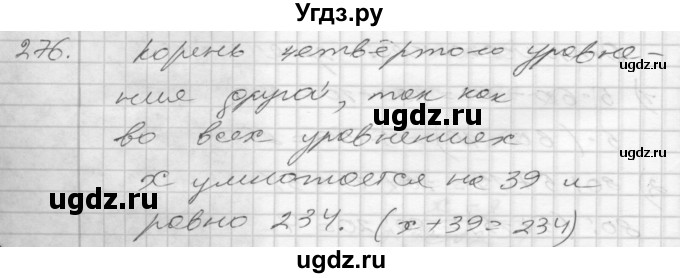 Угдз.ру
276. Корень четвёртого уравне-
ния другой, так как
во всех уравнениях
х умножается на 39 и
равно 234. (х+39=234)
ugdz.ru
ugdz.ru
ugdz.ru
ugdz.ru
ugdz.ru
ugdz.ru
ugdz.ru
ugdz.ru